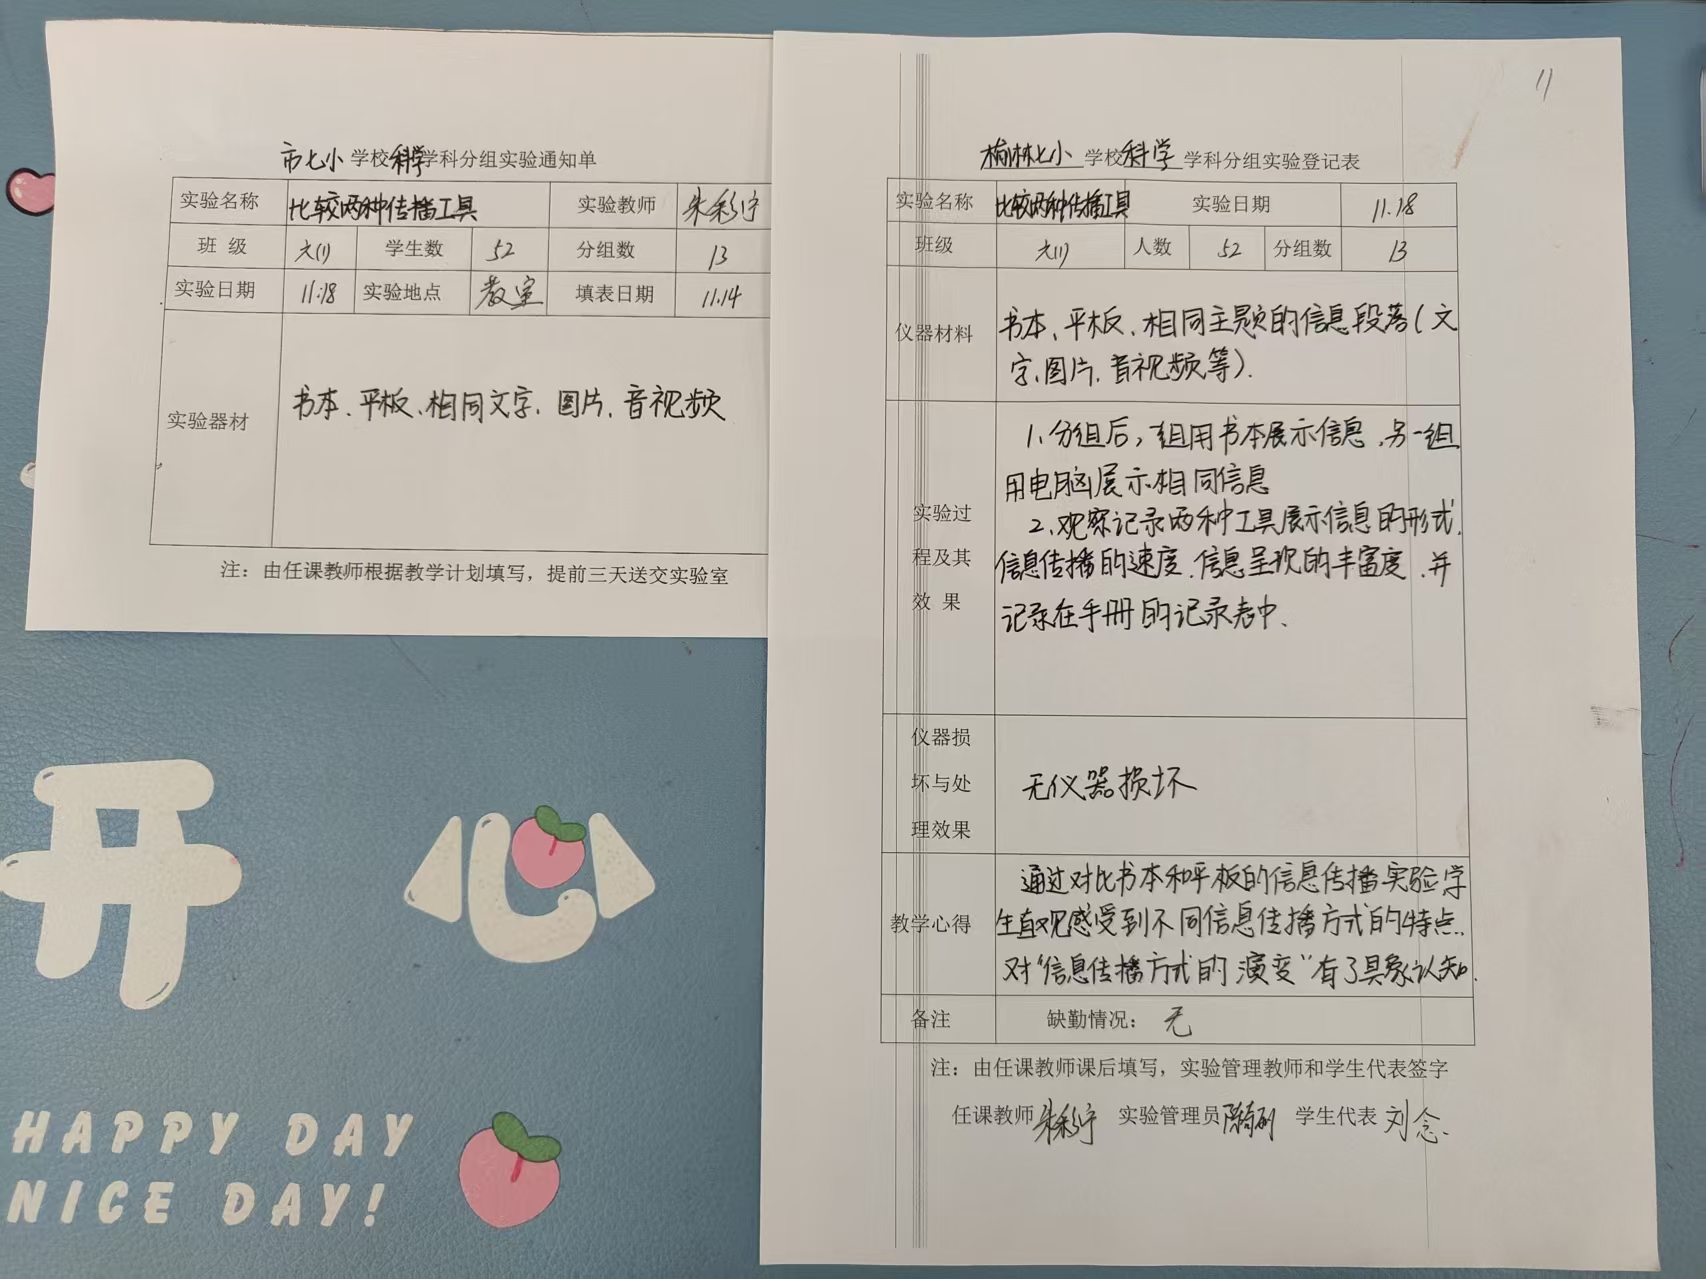 市七小 学校科学学科分组实验通知单
实验名称 比较两种传播工具 实验教师 朱彩宁
班 级 六(1) 学生数 52 分组数 13
实验日期 11.18 实验地点 教室 填表日期 11.14
实验器材 书本、平板、相同文字、图片、音视频
注：由任课教师根据教学计划填写，提前三天送交实验室
11
榆林七小 学校科学 学科分组实验登记表
实验名称 比较两种传播工具 实验日期 11.18
班级 六(1) 人数 52 分组数 13
仪器材料 书本、平板、相同主题的信息段落(文
字、图片、音视频等).
1、分组后，一组用书本展示信息，另一组
用电脑展示相同信息
实验过
2、观察记录两种工具展示信息的形式、
程及其 信息传播的速度、信息呈现的丰富度、并
效 果 记录在手册的记录表中、
仪器损
坏与处 无仪器损坏
理效果
通过对比书本和平板的信息传播实验学
教学心得 生直观感受到不同信息传播方式的特点..
对“信息传播方式的演变”有了具象认知.
备注 缺勤情况： 无
注：由任课教师课后填写，实验管理教师和学生代表签字
任课教师 朱彩宁 实验管理员 学生代表 刘念
开心
HAPPY DAY
NICE DAY!